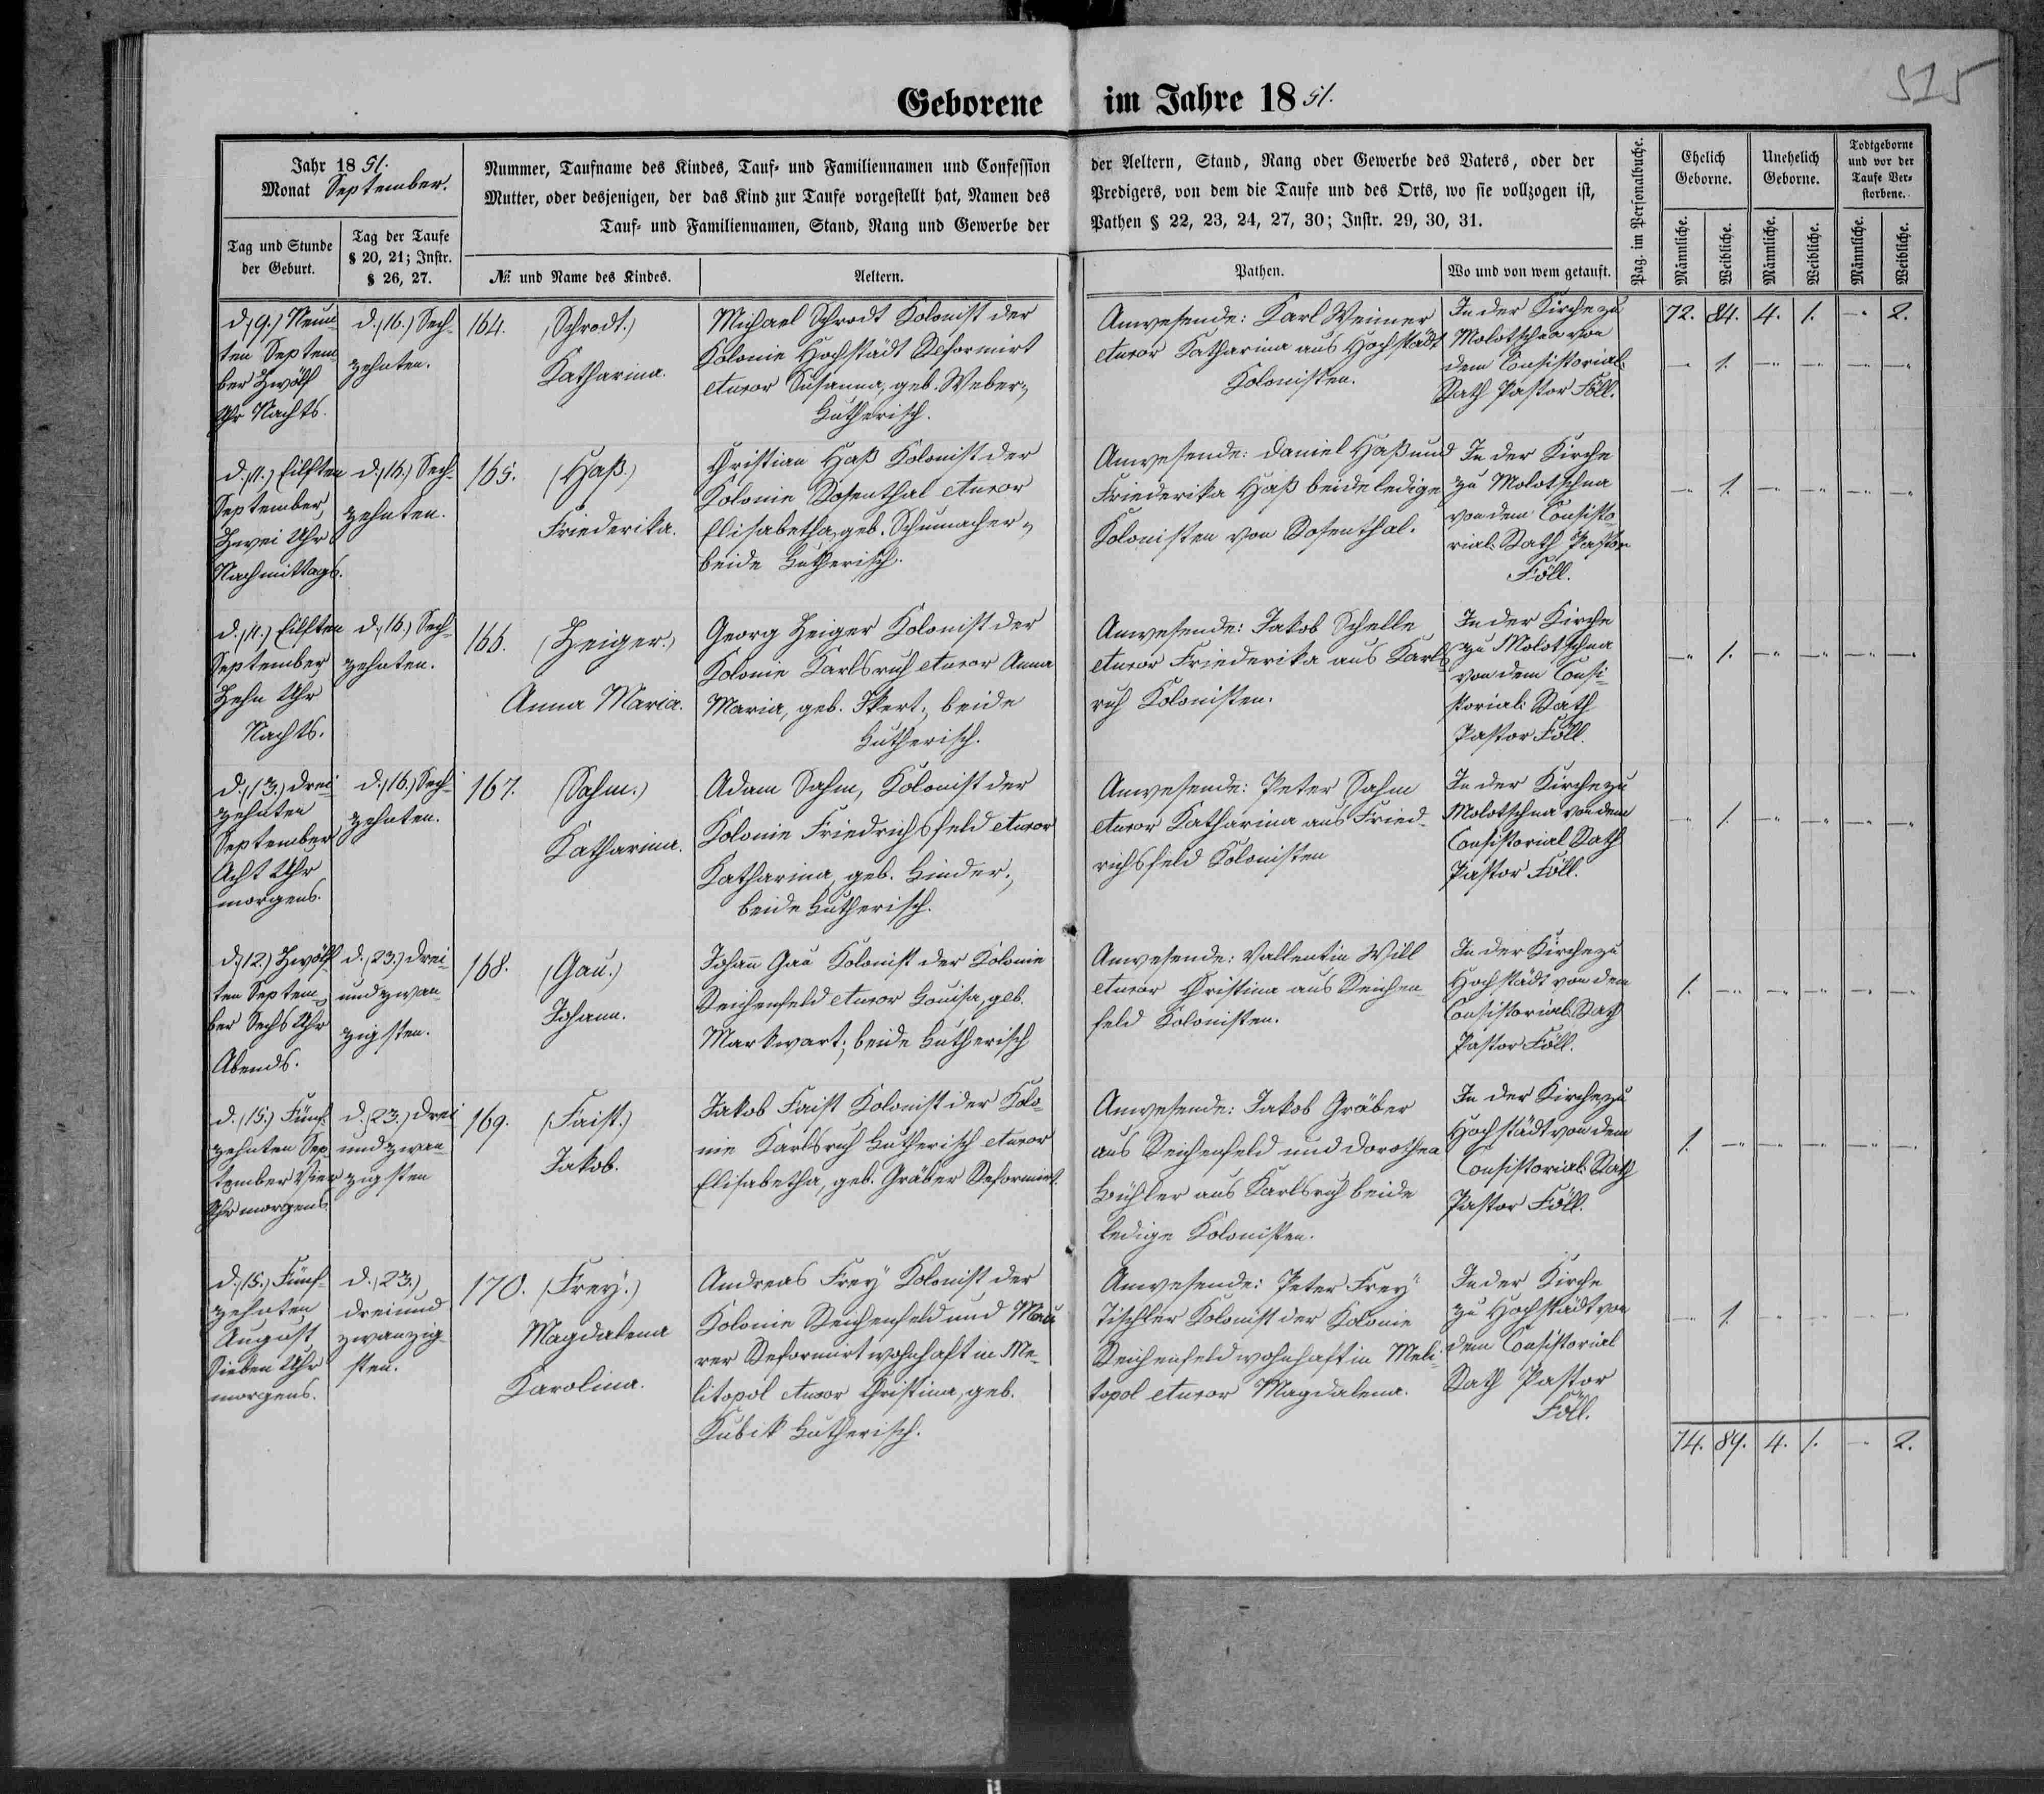 515
Geborene im Jahre 1851.
Jahr 1851.
Monat September.
Nummer, Taufname des Kindes, Tauf- und Familiennamen und Confession der Aeltern, Stand, Rang oder Gewerbe des Vaters, oder der
Mutter, oder desjenigen, der das Kind zur Taufe vorgestellt hat, Namen des Predigers, von dem die Taufe und des Orts, wo sie vollzogen ist,
Tauf- und Familiennamen, Stand, Rang und Gewerbe der Pathen § 22, 23, 24, 27, 30; Instr. 29, 30, 31.
Tag und Stunde
der Geburt.
Tag der Taufe
§ 20, 21; Instr.
§ 26, 27.
№ und Name des Kindes.
Aeltern.
Pathen.
Wo und von wem getauft.
Pag. im Personalbuche.
Ehelich
Geborne.
Unehelich
Geborne.
Todtgeborne
und vor der
Taufe Ver-
storbene.
Männliche.
Weibliche.
Männliche.
Weibliche.
Männliche.
Weibliche.
d. (9.) Neun-
ten Septem-
ber Zwölf
Uhr Nachts.
d. (16.) Sech-
zehnten.
164. (Schrodt.)
Katharina.
Michael Schrodt Kolonist der
Kolonie Hochstädt Reformirt
et uxor Susanna, geb. Weber;
Lutherisch.
Anwesende: Karl Weimer
et uxor Katharina aus Hochstädt
Kolonisten.
In der Kirche zu
Molotschna von
dem Consistorial-
Rath Pastor Föll.
72. 84. 4. 1. -" 2.
-" 1. -" -" -" -"
d. (11.) Eilften
September,
Zwei Uhr
Nachmittags.
d. (16.) Sech-
zehnten.
165. (Haß.)
Friederika.
Christian Haß Kolonist der
Kolonie Rosenthal et uxor
Elisabetha, geb. Schumacher;
beide Lutherisch.
Anwesende: Daniel Haß und
Friederika Haß beide ledige
Kolonisten von Rosenthal.
In der Kirche
zu Molotschna
von dem Consisto-
rial-Rath Pastor
Föll.
-" 1. -" -" -" -"
d. (11.) Eilften
September
Zehn Uhr
Nachts.
d. (16.) Sech-
zehnten.
166. (Zeiger.)
Anna Maria.
Georg Zeiger Kolonist der
Kolonie Karlsruh et uxor Anna
Maria, geb. Ikert; beide
Lutherisch.
Anwesende: Jakob Schelle
et uxor Friederika aus Karls-
ruh Kolonisten.
In der Kirche
zu Molotschna
von dem Consi-
storial-Rath
Pastor Föll.
-" 1. -" -" -" -"
d. (13.) Drei-
zehnten
September
Acht Uhr
morgens.
d. (16.) Sech-
zehnten.
167. (Sahm.)
Katharina.
Adam Sahm, Kolonist der
Kolonie Friedrichsfeld et uxor
Katharina, geb. Binder;
beide Lutherisch.
Anwesende: Peter Sahm
et uxor Katharina aus Fried-
richsfeld Kolonisten
In der Kirche zu
Molotschna von dem
Consistorial Rath
Pastor Föll.
-" 1. -" -" -" -"
d. (12.) Zwölf-
ten Septem-
ber Sechs Uhr
Abends.
d. (23.) Drei-
undzwan-
zigsten.
168. (Gau.)
Johann.
Johann Gau Kolonist der Kolonie
Reichenfeld et uxor Louisa, geb.
Markwart; beide Lutherisch
Anwesende: Vallentin Will
et uxor Christina aus Reichen-
feld Kolonisten.
In der Kirche zu
Hochstädt von dem
Consistorial-Rath
Pastor Föll.
1. -" -" -" -" -"
d. (15.) Fünf-
zehnten Sep-
tember Vier
Uhr morgens.
d. (23.) Drei
undzwan-
zigsten
169. (Faist.)
Jakob.
Jakob Faist Kolonist der Kolo-
nie Karlsruh Lutherisch et uxor
Elisabetha, geb. Gräber Reformirt.
Anwesende: Jakob Gräber
aus Reichenfeld und Dorothea
Bühler aus Karlsruh beide
ledige Kolonisten.
In der Kirche zu
Hochstädt von dem
Consistorial-Rath
Pastor Föll.
1. -" -" -" -" -"
d. (15.) Fünf-
zehnten
August
Sieben Uhr
morgens.
d. (23.)
dreiund
zwanzig-
sten.
170. (Freÿ.)
Magdalena
Karolina.
Andreas Freÿ Kolonist der
Kolonie Reichenfeld und Mau-
rer Reformirt wohnhaft in Me-
litopol et uxor Christina, geb.
Kubik Lutherisch.
Anwesende: Peter Freÿ
Tischler Kolonist der Kolonie
Reichenfeld wohnhaft in Meli-
topol et uxor Magdalena.
In der Kirche
zu Hochstädt von
dem Consistorial
Rath Pastor
Föll.
-" 1. -" -" -" -"
74. 89. 4. 1. -" 2.